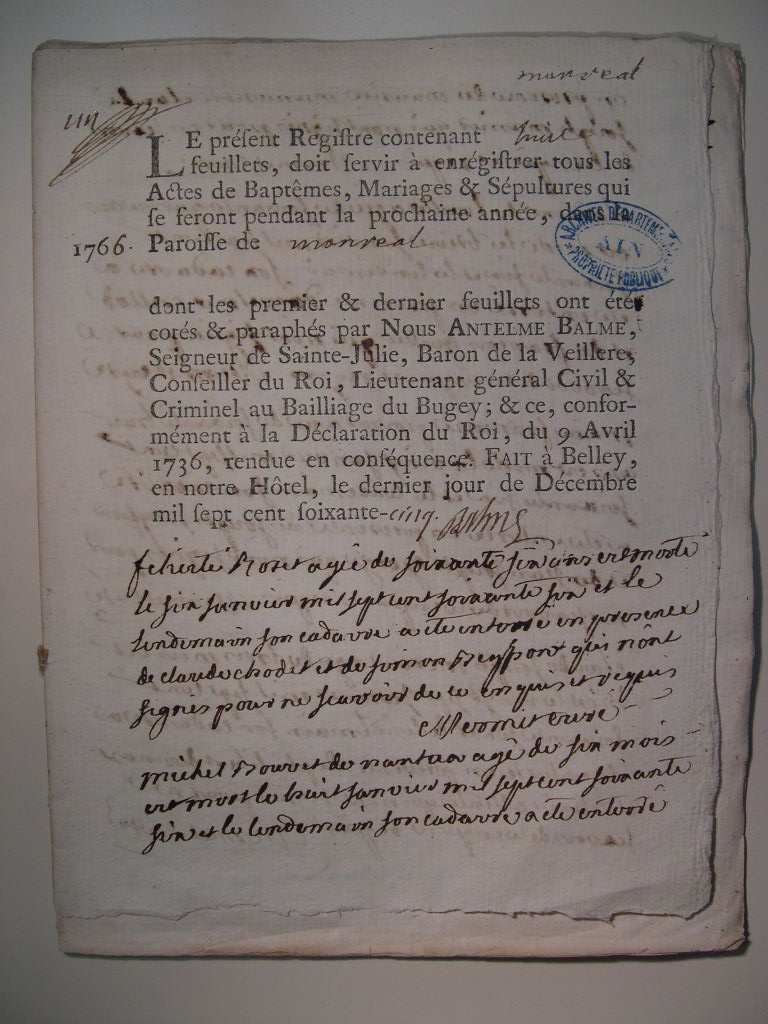 monreal
un
LE présent Registre contenant huit
feuillets, doit servir à enrégistrer tous les
Actes de Baptêmes, Mariages & Sépultures qui
se feront pendant la prochaine année, dans la
1766. Paroisse de monreal
ARCHIVES DÉPARTEMENTALES
AIN
PROPRIÉTÉ PUBLIQUE
dont les premier & dernier feuillets ont été
cotés & paraphés par Nous ANTELME BALME,
Seigneur de Sainte-Julie, Baron de la Veillere,
Conseiller du Roi, Lieutenant général Civil &
Criminel au Bailliage du Bugey; & ce, confor-
mément à la Déclaration du Roi, du 9 Avril
1736, rendue en conséquence. FAIT à Belley,
en notre Hôtel, le dernier jour de Décembre
mil sept cent soixante-cinq. Balme
felicité agée de soixante six ans est morte
le six janvier mil sept cent soixante six et le
lendemain son cadavre a ete enterré en presence
de claude chodet et de simon qui nônt
signés pour ne scavoir de ce enquis et requis
curé
michel Bouvet de nantua agê de six mois
est mort le huit janvier mil sept cent soixante
six et le lendemain son cadavre a ete enterrê